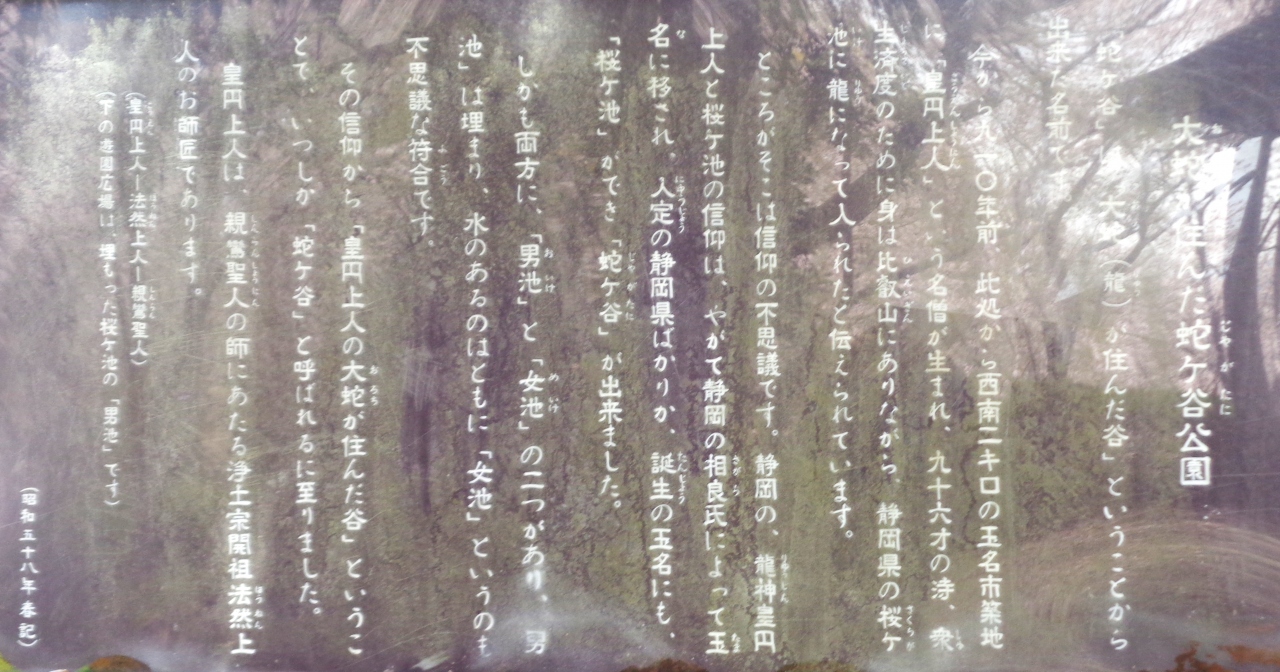 大蛇の住んだ蛇ケ谷公園
蛇ケ谷は「大蛇（龍）が住んだ谷」ということから
出来た名前で
今から九一〇年前、此処から西南二キロの玉名市築地
に「皇円上人」という名僧が生まれ、九十六才の時、衆
生済度のために身は比叡山にありながら、静岡県の桜ケ
池に龍になって入られたと伝えられています。
ところがそこは信仰の不思議です。静岡の、龍神皇円
上人と桜ケ池の信仰は、やがて静岡の相良氏によって玉
名に移され。入定の静岡県ばかりか、誕生の玉名にも、
「桜ケ池」ができ「蛇ケ谷」が出来ました。
しかも両方に、「男池」と「女池」の二つがあり、男
池」は埋まり、水のあるのはともに「女池」というのも
不思議な符合です。
その信仰から「皇円上人の大蛇が住んだ谷」というこ
とで、いつしか「蛇ケ谷」と呼ばれるに至りました。
皇円上人は、親鸞聖人の師にあたる浄土宗開祖法然上
人のお師匠であります。
（皇円上人―法然上人―親鸞聖人）
（下の遊園広場は、埋もった桜ケ池の「男池」です）
（昭和五十八年春記）